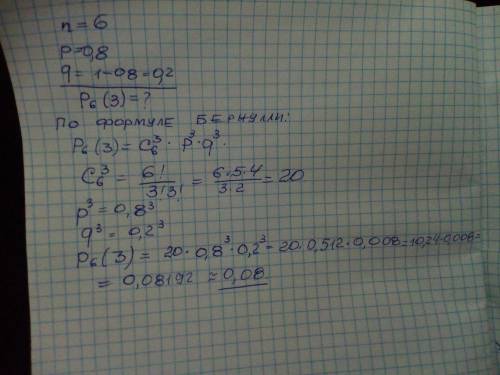 n = 6
p = 0,8
q = 1 - 0.8 = 0,2
P₆(3) = ?
По формуле Бернулли:
P₆(3) = C₆³ · p³ · q³.
C₆³ = 6! / 3!3! = 6·5·4 / 3·2 = 20
p³ = 0,8³
q³ = 0,2³
P₆(3) = 20 · 0,8³ · 0,2³ = 20 · 0,512 · 0,008 = 10,24 · 0,008 =
= 0,08192 ≈ 0,08